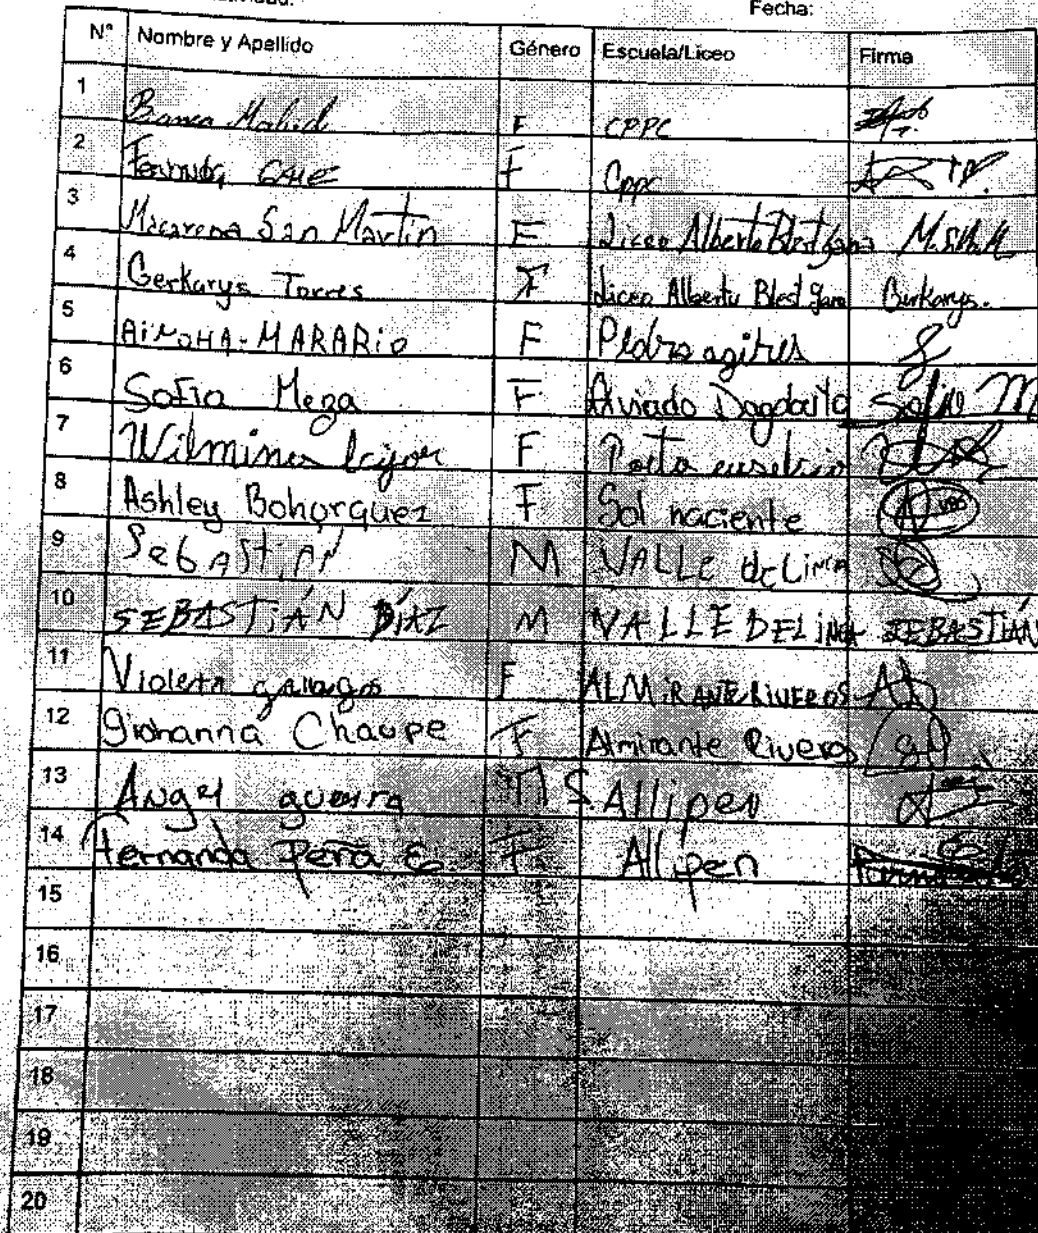 Fecha:
N° Nombre y Apellido Género Escuela/Liceo Firma
1 F CPPC
2 F Cppc
3 Macarena San Martin F Liceo Alberto Blest Gana M.S.M.M
4 Gerkarys Torres F Liceo Alberto Blest Gana Gerkarys.
5 AiNOHA. MARARiO F Pedro agires
6 Sofia Meza F Alviado Dagoberto Sofia M
7 Wilmines F Poeta eusebio
8 Ashley Bohorquez F Sol naciente
9 Sebastián M VALLE de Lina
10 SEBASTiÁN DÍAZ M VALLE DE LiNA SEBASTIÁN
11 Violeta gallegos F ALMiRANTE RiVEROS
12 Giohanna Chaupe F Almirante Riveros
13 Angel guerra M Allipen
14 Fernanda Peña E. F Allipen
15
16
17
18
19
20